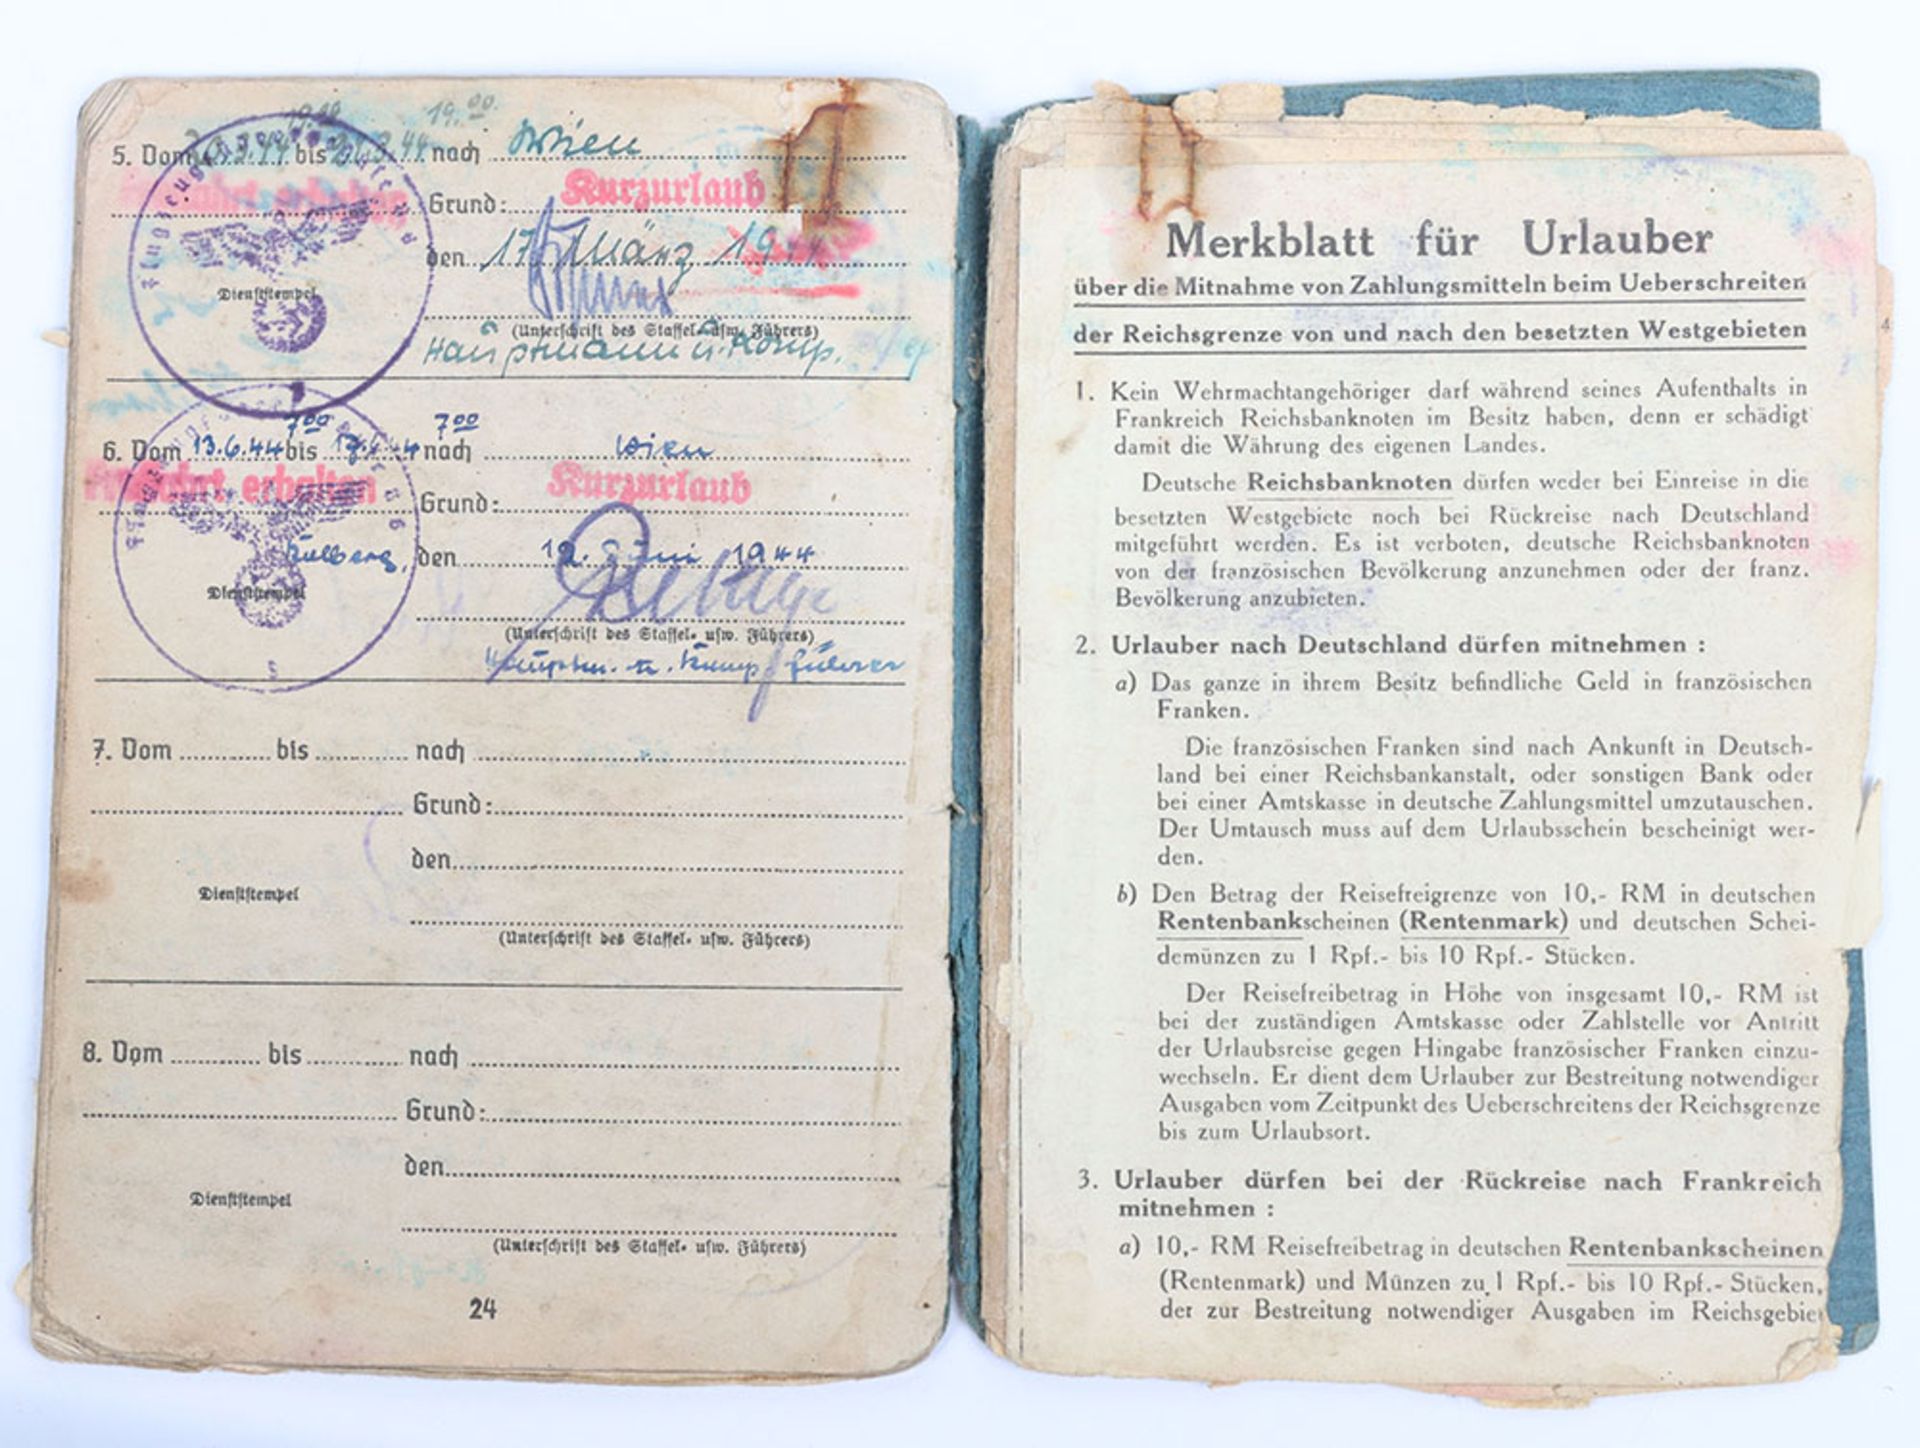 19.00 19.00
5. Vom bis nach Wien
Grund: Kurzurlaub
den 17. März 1944
Dienststempel
(Unterschrift des Staffel- usw. Führers)
Hauptmann u. Komp.
7 00 7 00
6. Vom 13.6.44 bis 17.6.44 nach Wien
erhalten Grund: Kurzurlaub
den 12. Juni 1944
Dienststempel
(Unterschrift des Staffel- usw. Führers)
Hauptm. u. Komp. Führer
7. Vom bis nach
Grund:
den
Dienststempel
(Unterschrift des Staffel- usw. Führers)
8. Vom bis nach
Grund:
den
Dienststempel
(Unterschrift des Staffel- usw. Führers)
24
Merkblatt für Urlauber
über die Mitnahme von Zahlungsmitteln beim Ueberschreiten
der Reichsgrenze von und nach den besetzten Westgebieten
1. Kein Wehrmachtangehöriger darf während seines Aufenthalts in
Frankreich Reichsbanknoten im Besitz haben, denn er schädigt
damit die Währung des eigenen Landes.
Deutsche Reichsbanknoten dürfen weder bei Einreise in die
besetzten Westgebiete noch bei Rückreise nach Deutschland
mitgeführt werden. Es ist verboten, deutsche Reichsbanknoten
von der französischen Bevölkerung anzunehmen oder der franz.
Bevölkerung anzubieten.
2. Urlauber nach Deutschland dürfen mitnehmen :
a) Das ganze in ihrem Besitz befindliche Geld in französischen
Franken.
Die französischen Franken sind nach Ankunft in Deutsch-
land bei einer Reichsbankanstalt, oder sonstigen Bank oder
bei einer Amtskasse in deutsche Zahlungsmittel umzutauschen.
Der Umtausch muss auf dem Urlaubsschein bescheinigt wer-
den.
b) Den Betrag der Reisefreigrenze von 10,- RM in deutschen
Rentenbankscheinen (Rentenmark) und deutschen Schei-
demünzen zu 1 Rpf.- bis 10 Rpf.- Stücken.
Der Reisefreibetrag in Höhe von insgesamt 10,- RM ist
bei der zuständigen Amtskasse oder Zahlstelle vor Antritt
der Urlaubsreise gegen Hingabe französischer Franken einzu-
wechseln. Er dient dem Urlauber zur Bestreitung notwendiger
Ausgaben vom Zeitpunkt des Ueberschreitens der Reichsgrenze
bis zum Urlaubsort.
3. Urlauber dürfen bei der Rückreise nach Frankreich
mitnehmen :
a) 10,- RM Reisefreibetrag in deutschen Rentenbankscheinen
(Rentenmark) und Münzen zu 1 Rpf.- bis 10 Rpf.- Stücken,
der zur Bestreitung notwendiger Ausgaben im Reichsgebiet